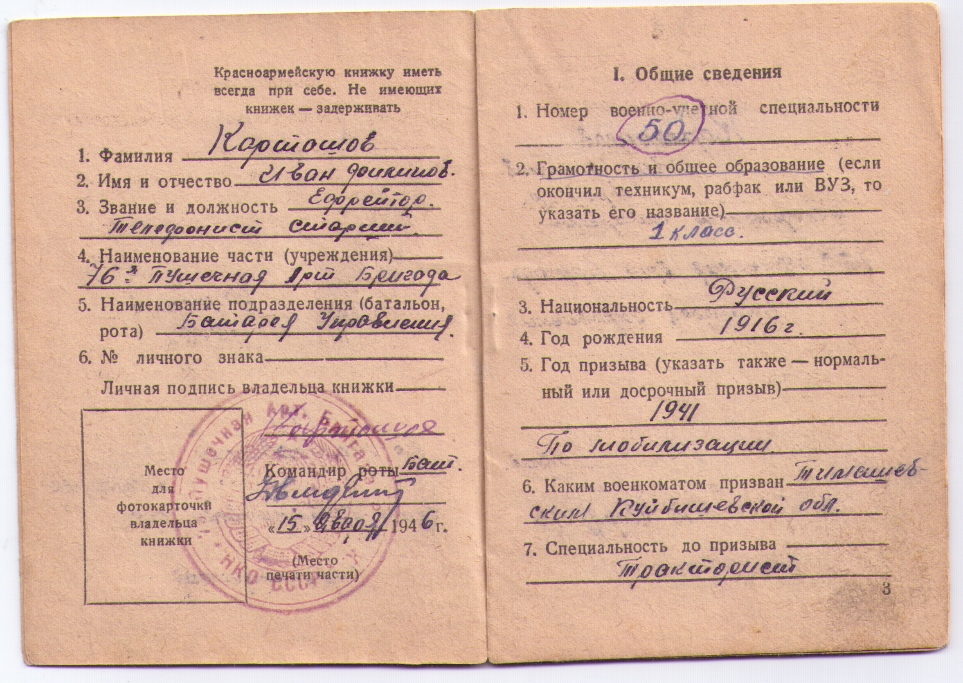 Красноармейскую книжку иметь
всегда при себе. Не имеющих
книжек — задерживать
1. Фамилия Карташов
2. Имя и отчество Иван Филипов.
3. Звание и должность Ефрейтор.
Телефонист старший.
4. Наименование части (учреждения)
76я Пушечная Арт Бригада
5. Наименование подразделения (батальон,
рота) Батарея Управления.
6. № личного знака
Личная подпись владельца книжки
Место
для
фотокарточки
владельца
книжки
Командир роты Бат.
„15" января 1946 г.
(Место
печати части)
Пушечная Арт. Бригада
НКО СССР
I. Общие сведения
1. Номер военно-учетной специальности
50
2. Грамотность и общее образование (если
окончил техникум, рабфак или ВУЗ, то
указать его название)
1 класс.
3. Национальность Русский
4. Год рождения 1916 г.
5. Год призыва (указать также — нормаль-
ный или досрочный призыв)
1941
По мобилизации.
6. Каким военкоматом призван Тимашев-
ским Куйбишевской обл.
7. Специальность до призыва
Тракторист
3